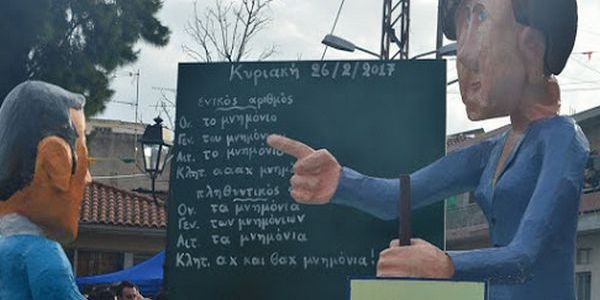 Κυριακή 26/2/2017
ενικός αριθμός
Ον. το μνημόνιο
Γεν. του μνημόνιου
Αιτ. το μνημόνιο
Κλητ. αααχ μνημό
πληθυντικός
Ον. τα μνημόνια
Γεν. των μνημόνιων
Αιτ. τα μνημόνια
Κλητ. αχ και βαχ μνημόνια!